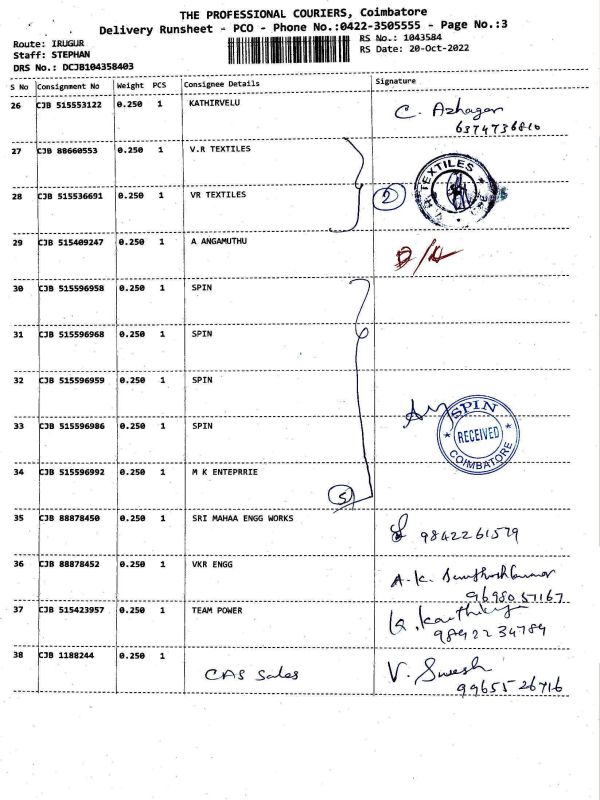 THE PROFESSIONAL COURIERS, Coimbatore
Delivery Runsheet - PCO - Phone No.:0422-3505555 - Page No.:3
Route: IRUGUR
RS No.: 1043584
Staff: STEPHAN
RS Date: 20-Oct-2022
DRS No.: DCJB104358403
S No Consignment No Weight PCS Consignee Details Signature
26 CJB 515553122 0.250 1 KATHIRVELU C. Azhagar
6374736810
27 CJB 88660553 0.250 1 V.R TEXTILES
V.R. TEXTILES
28 CJB 515536691 0.250 1 VR TEXTILES 2
29 CJB 515409247 0.250 1 A ANGAMUTHU D/A
30 CJB 515596958 0.250 1 SPIN
31 CJB 515596968 0.250 1 SPIN
32 CJB 515596959 0.250 1 SPIN
33 CJB 515596986 0.250 1 SPIN
SPIN
RECEIVED
COIMBATORE
34 CJB 515596992 0.250 1 M K ENTEPRRIE
5
35 CJB 88878450 0.250 1 SRI MAHAA ENGG WORKS 9842261579
36 CJB 88878452 0.250 1 VKR ENGG A.K.
9698057167
37 CJB 515423957 0.250 1 TEAM POWER
9842234789
38 CJB 1188244 0.250 1 CAS Sales V. Suresh
9965526716